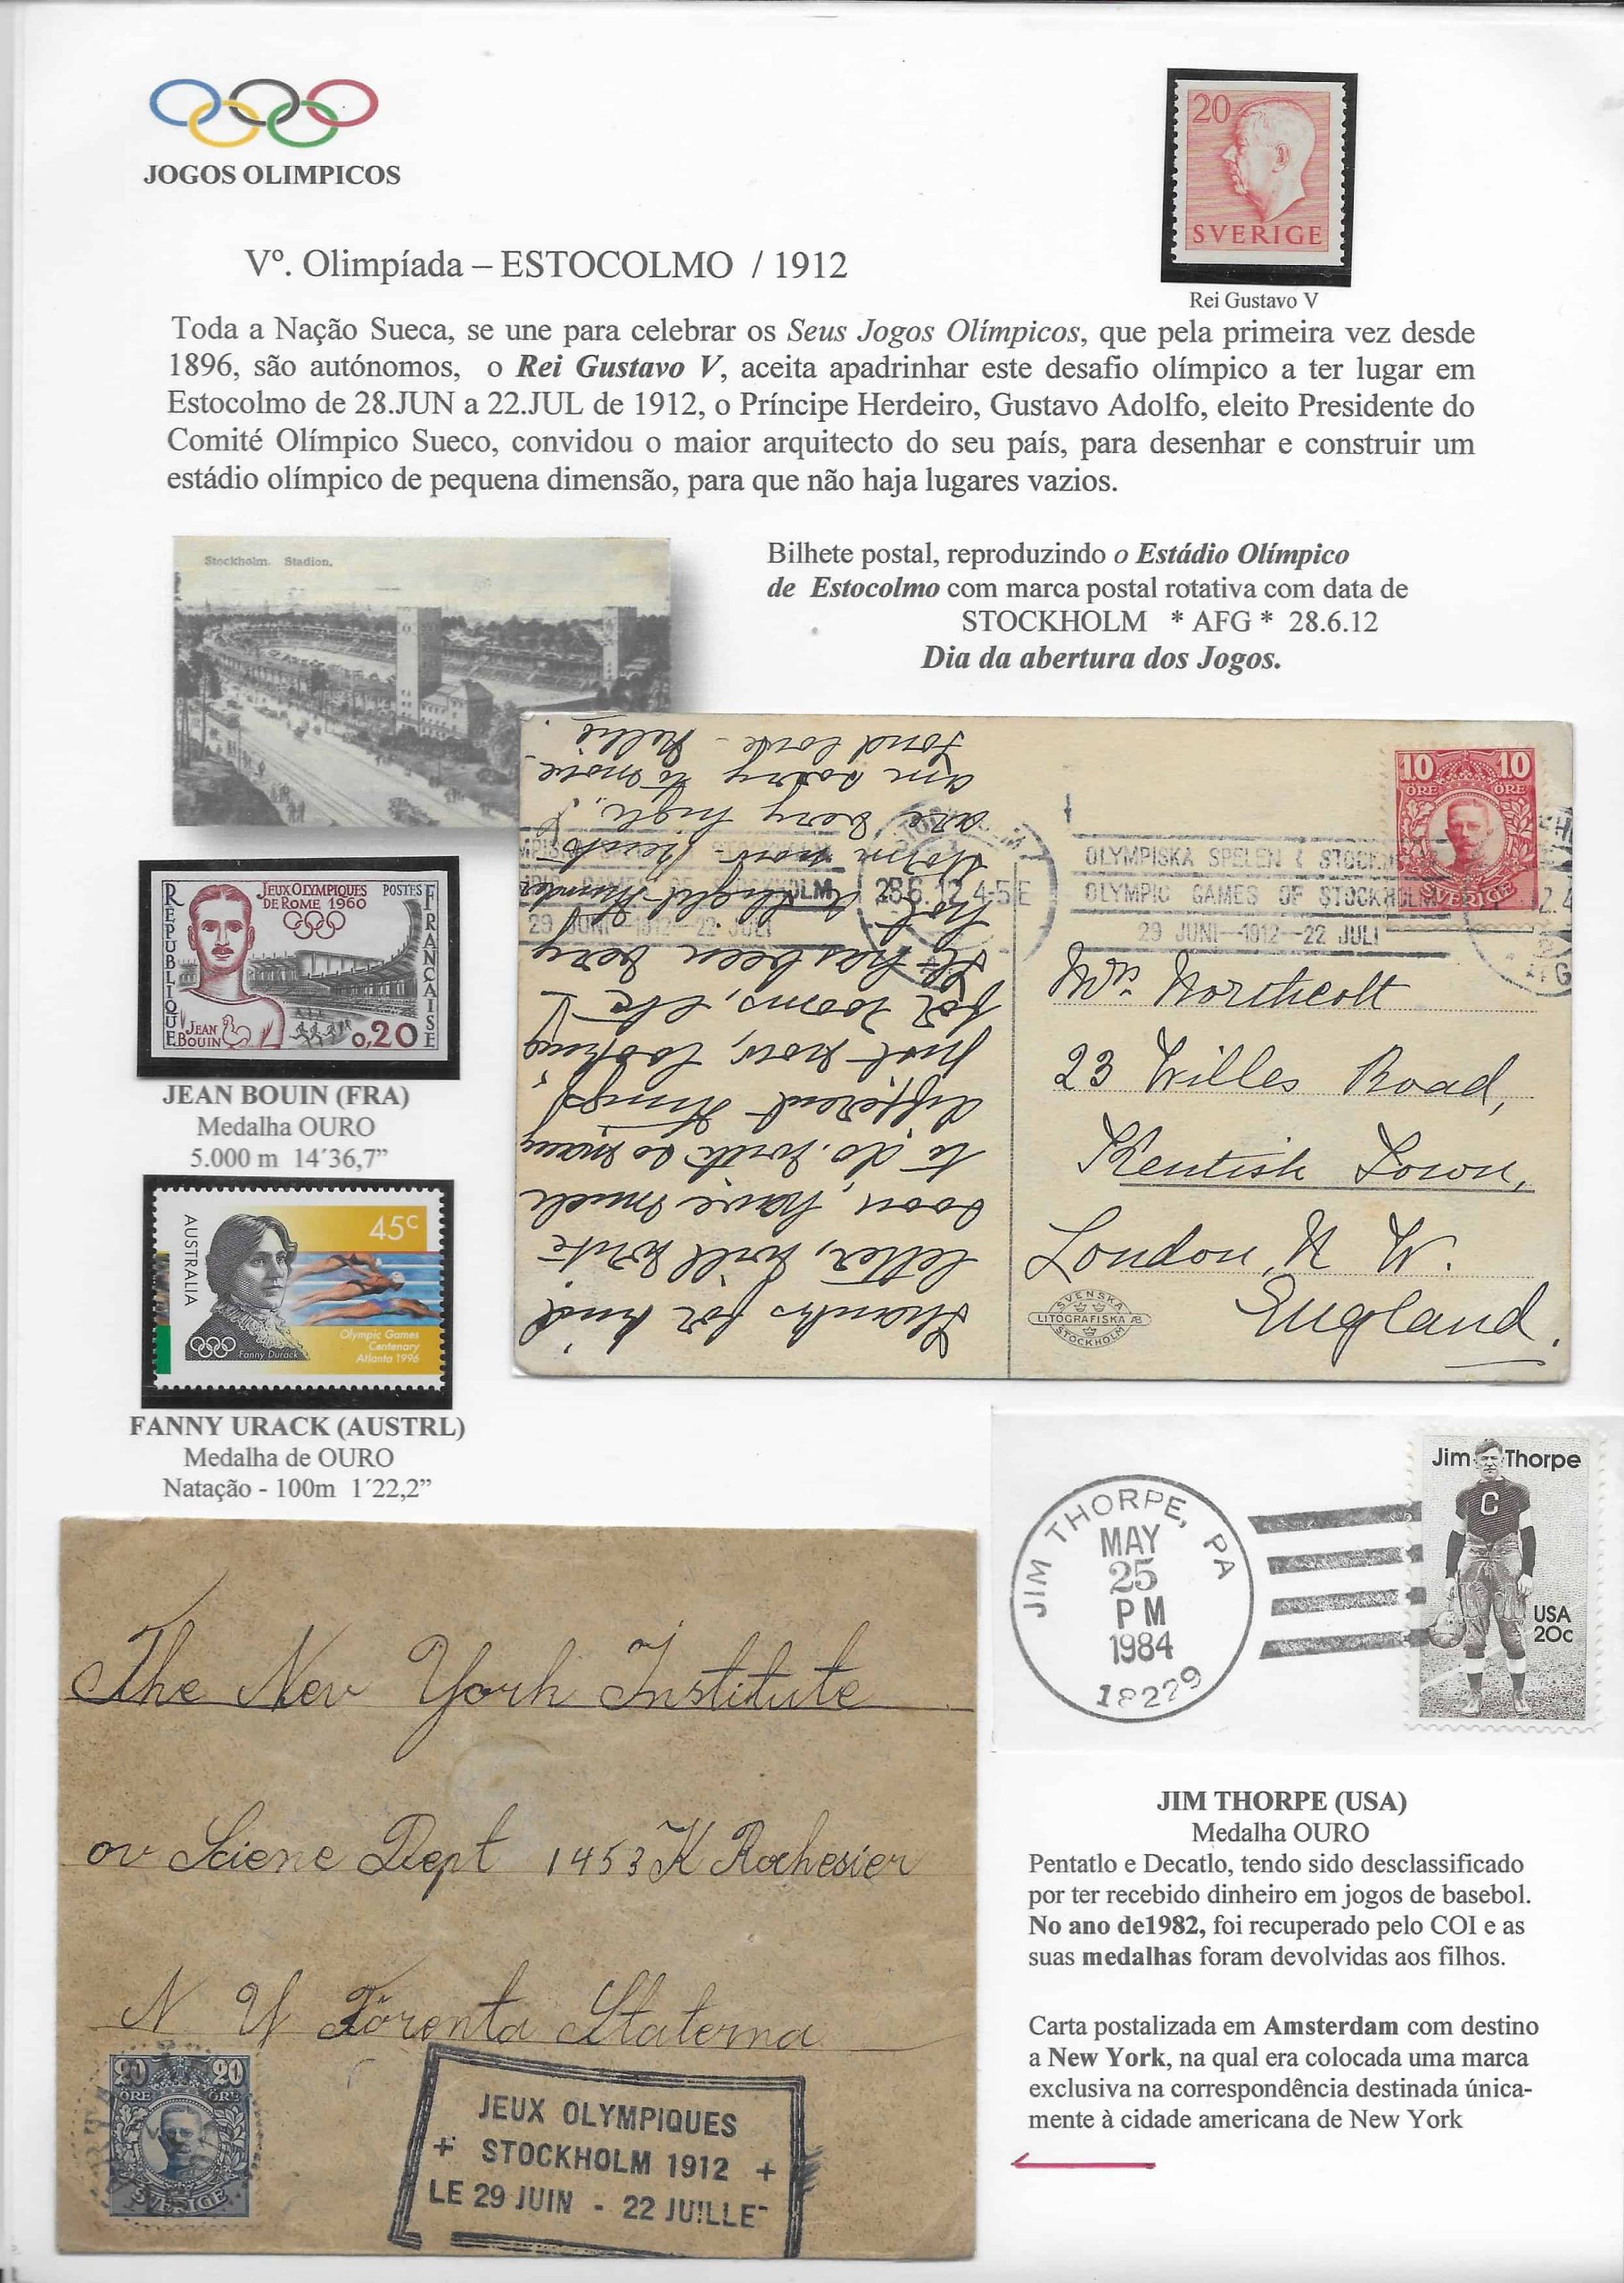 JOGOS OLIMPICOS
20
SVERIGE
Rei Gustavo V
Vº. Olimpíada – ESTOCOLMO / 1912
Toda a Nação Sueca, se une para celebrar os Seus Jogos Olímpicos, que pela primeira vez desde
1896, são autónomos, o Rei Gustavo V, aceita apadrinhar este desafio olímpico a ter lugar em
Estocolmo de 28.JUN a 22.JUL de 1912, o Príncipe Herdeiro, Gustavo Adolfo, eleito Presidente do
Comité Olímpico Sueco, convidou o maior arquitecto do seu país, para desenhar e construir um
estádio olímpico de pequena dimensão, para que não haja lugares vazios.
Stockholm. Stadion.
Bilhete postal, reproduzindo o Estádio Olímpico
de Estocolmo com marca postal rotativa com data de
STOCKHOLM * AFG * 28.6.12
Dia da abertura dos Jogos.
Thanks for kind
letter, will write
soon, have much
to do. with so many
different things,
just now, looking
for rooms, etc
It has been very
hot & slight thunder
storm now.
are very high,
am sorry to move.
Fond love - Nellie.
28.6.12.4-5E
29 JUNI—1912—22 JULI
10 10
ÖRE ÖRE
SVERIGE
OLYMPISKA SPELEN I STOCKH
OLYMPIC GAMES OF STOCKHOLM
29 JUNI—1912—22 JULI
Mrs Northcolt
23 Willes Road,
Kentish Town,
London, N. W.
England.
SVENSKA
LITOGRAFISKA AB
STOCKHOLM
REPUBLIQUE FRANCAISE
JEUX OLYMPIQUES
DE ROME 1960
POSTES
JEAN
BOUIN
0,20
JEAN BOUIN (FRA)
Medalha OURO
5.000 m 14´36,7”
AUSTRALIA
45c
Olympic Games
Centenary
Atlanta 1996
Fanny Durack
FANNY URACK (AUSTRL)
Medalha de OURO
Natação - 100m 1´22,2”
JIM THORPE, PA
MAY
25
PM
1984
18229
Jim Thorpe
C
USA
20c
JIM THORPE (USA)
Medalha OURO
Pentatlo e Decatlo, tendo sido desclassificado
por ter recebido dinheiro em jogos de basebol.
No ano de1982, foi recuperado pelo COI e as
suas medalhas foram devolvidas aos filhos.
Carta postalizada em Amsterdam com destino
a New York, na qual era colocada uma marca
exclusiva na correspondência destinada única-
mente à cidade americana de New York
The New York Institute
ov Sciene Dept 1453 K Rochesier
N Y Förenta Staterna
20 20
ÖRE ÖRE
SVERIGE
JEUX OLYMPIQUES
+ STOCKHOLM 1912 +
LE 29 JUIN - 22 JUILLET